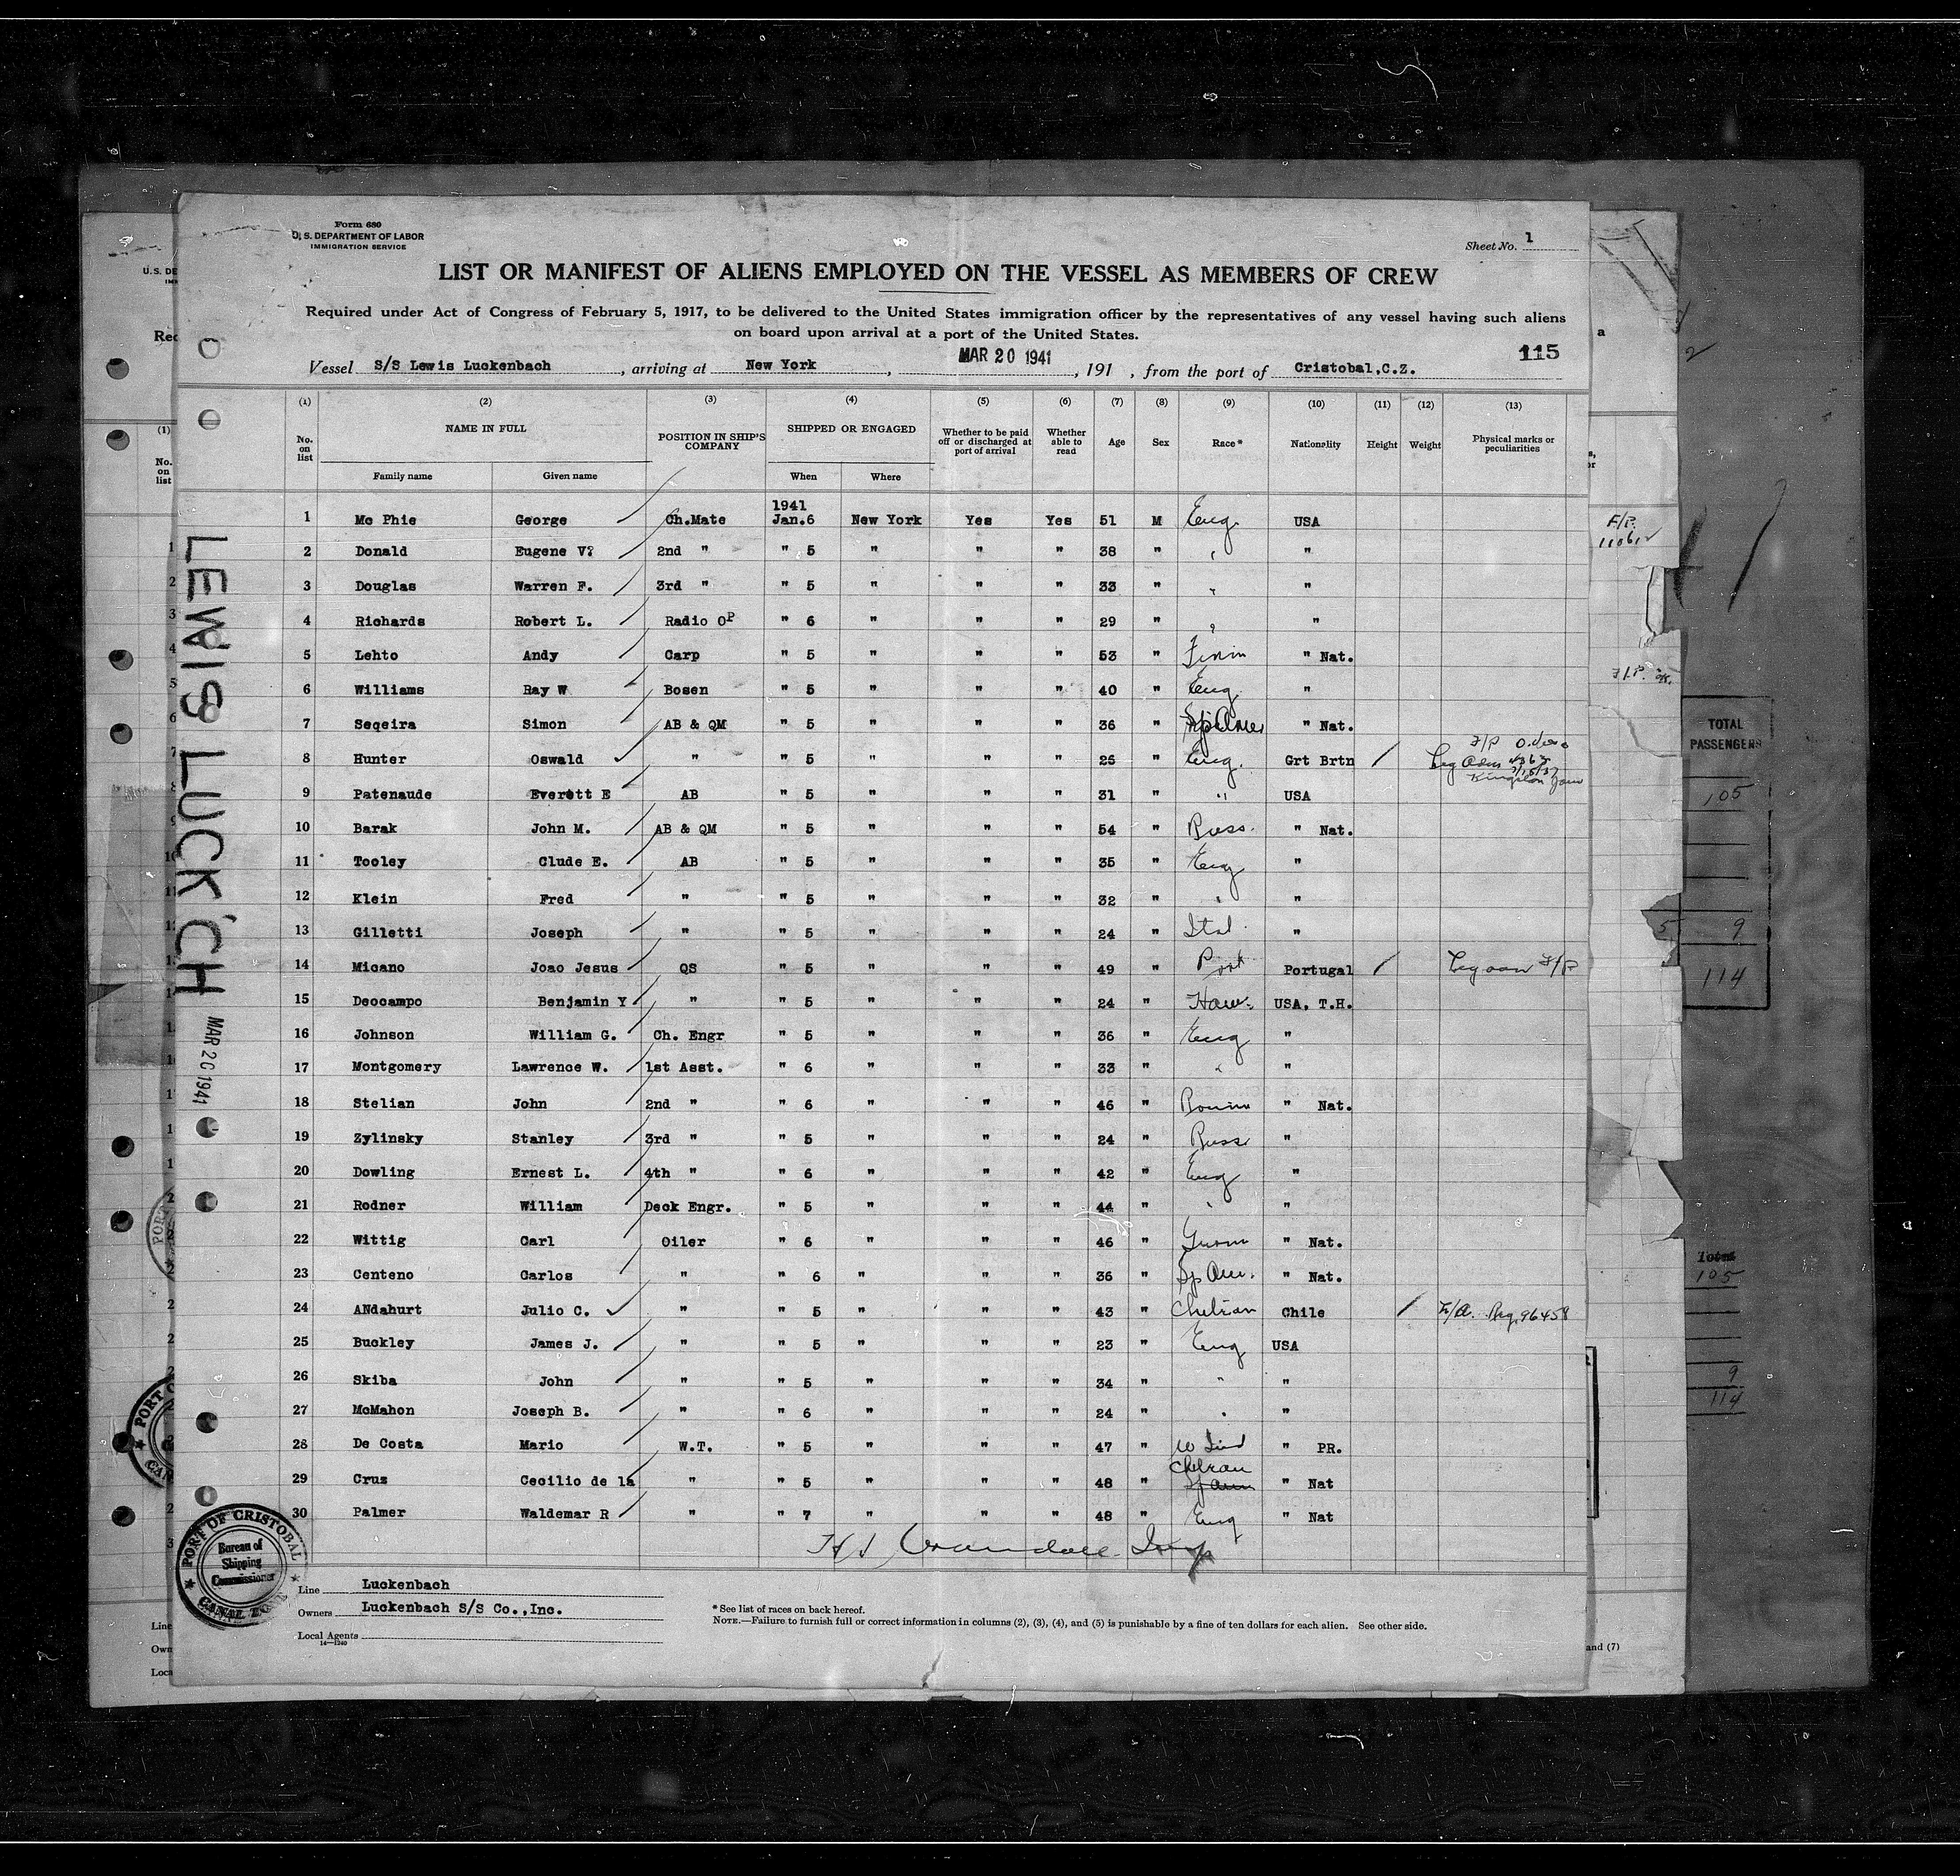 Form 680
U. S. DEPARTMENT OF LABOR
IMMIGRATION SERVICE
Sheet No. 1
LIST OR MANIFEST OF ALIENS EMPLOYED ON THE VESSEL AS MEMBERS OF CREW
Required under Act of Congress of February 5, 1917, to be delivered to the United States immigration officer by the representatives of any vessel having such aliens
on board upon arrival at a port of the United States.
115
Vessel S/S Lewis Luckenbach, arriving at New York, MAR 20 1941, 191 , from the port of Cristobal,C.Z.
(1) (2) (3) (4) (5) (6) (7) (8) (9) (10) (11) (12) (13)
No. on list NAME IN FULL POSITION IN SHIP'S COMPANY SHIPPED OR ENGAGED Whether to be paid off or discharged at port of arrival Whether able to read Age Sex Race* Nationality Height Weight Physical marks or peculiarities
Family name Given name When Where
1 Mc Phie George Ch.Mate 1941 Jan.6 New York Yes Yes 51 M Eng. USA
2 Donald Eugene V? 2nd " " 5 " " " 38 " " "
3 Douglas Warren F. 3rd " " 5 " " " 33 " " "
4 Richards Robert L. Radio OP " 6 " " " 29 " " "
5 Lehto Andy Carp " 5 " " " 53 " Finn " Nat.
6 Williams Ray W Bosen " 5 " " " 40 " Eng. "
7 Seqeira Simon AB & QM " 5 " " " 36 " Sp Amer " Nat.
8 Hunter Oswald " " 5 " " " 25 " Eng. Grt Brtn / F/P Kingston Jam
9 Patenaude Everett E AB " 5 " " " 31 " " USA
10 Barak John M. AB & QM " 5 " " " 54 " Russ. " Nat.
11 Tooley Clude E. AB " 5 " " " 35 " Eng "
12 Klein Fred " " 5 " " " 32 " " "
13 Gilletti Joseph " " 5 " " " 24 " Ital. "
14 Micano Joao Jesus QS " 5 " " " 49 " Port Portugal / F/P
15 Deocampo Benjamin Y " " 5 " " " 24 " Haw. USA, T.H.
16 Johnson William G. Ch. Engr " 5 " " " 36 " Eng "
17 Montgomery Lawrence W. 1st Asst. " 6 " " " 33 " " "
18 Stelian John 2nd " " 6 " " " 46 " Roum " Nat.
19 Zylinsky Stanley 3rd " " 5 " " " 24 " Russ "
20 Dowling Ernest L. 4th " " 6 " " " 42 " Eng "
21 Rodner William Deck Engr. " 5 " " " 44 " " "
22 Wittig Carl Oiler " 6 " " " 46 " Germ " Nat.
23 Centeno Carlos " " 6 " " " 36 " Sp Am. " Nat.
24 ANdahurt Julio C. " " 5 " " " 43 " Chilean Chile / Reg. 96458
25 Buckley James J. " " 5 " " " 23 " Eng USA
26 Skiba John " " 5 " " " 34 " " "
27 McMahon Joseph B. " " 6 " " " 24 " " "
28 De Costa Mario W.T. " 5 " " " 47 " W Ind " PR.
29 Cruz Cecilio de la " " 5 " " " 48 " Chilean " Nat
30 Palmer Waldemar R " " 7 " " " 48 " Eng " Nat
Line Luckenbach
Owners Luckenbach S/S Co.,Inc.
Local Agents
14—1240
* See list of races on back hereof.
NOTE.—Failure to furnish full or correct information in columns (2), (3), (4), and (5) is punishable by a fine of ten dollars for each alien. See other side.
LEWIS LUCK'CH
MAR 20 1941
PORT OF CRISTOBAL
Bureau of
Shipping
Commissioner
CANAL ZONE
TOTAL
PASSENGERS
105
9
114
Total
105
9
114
and (7)